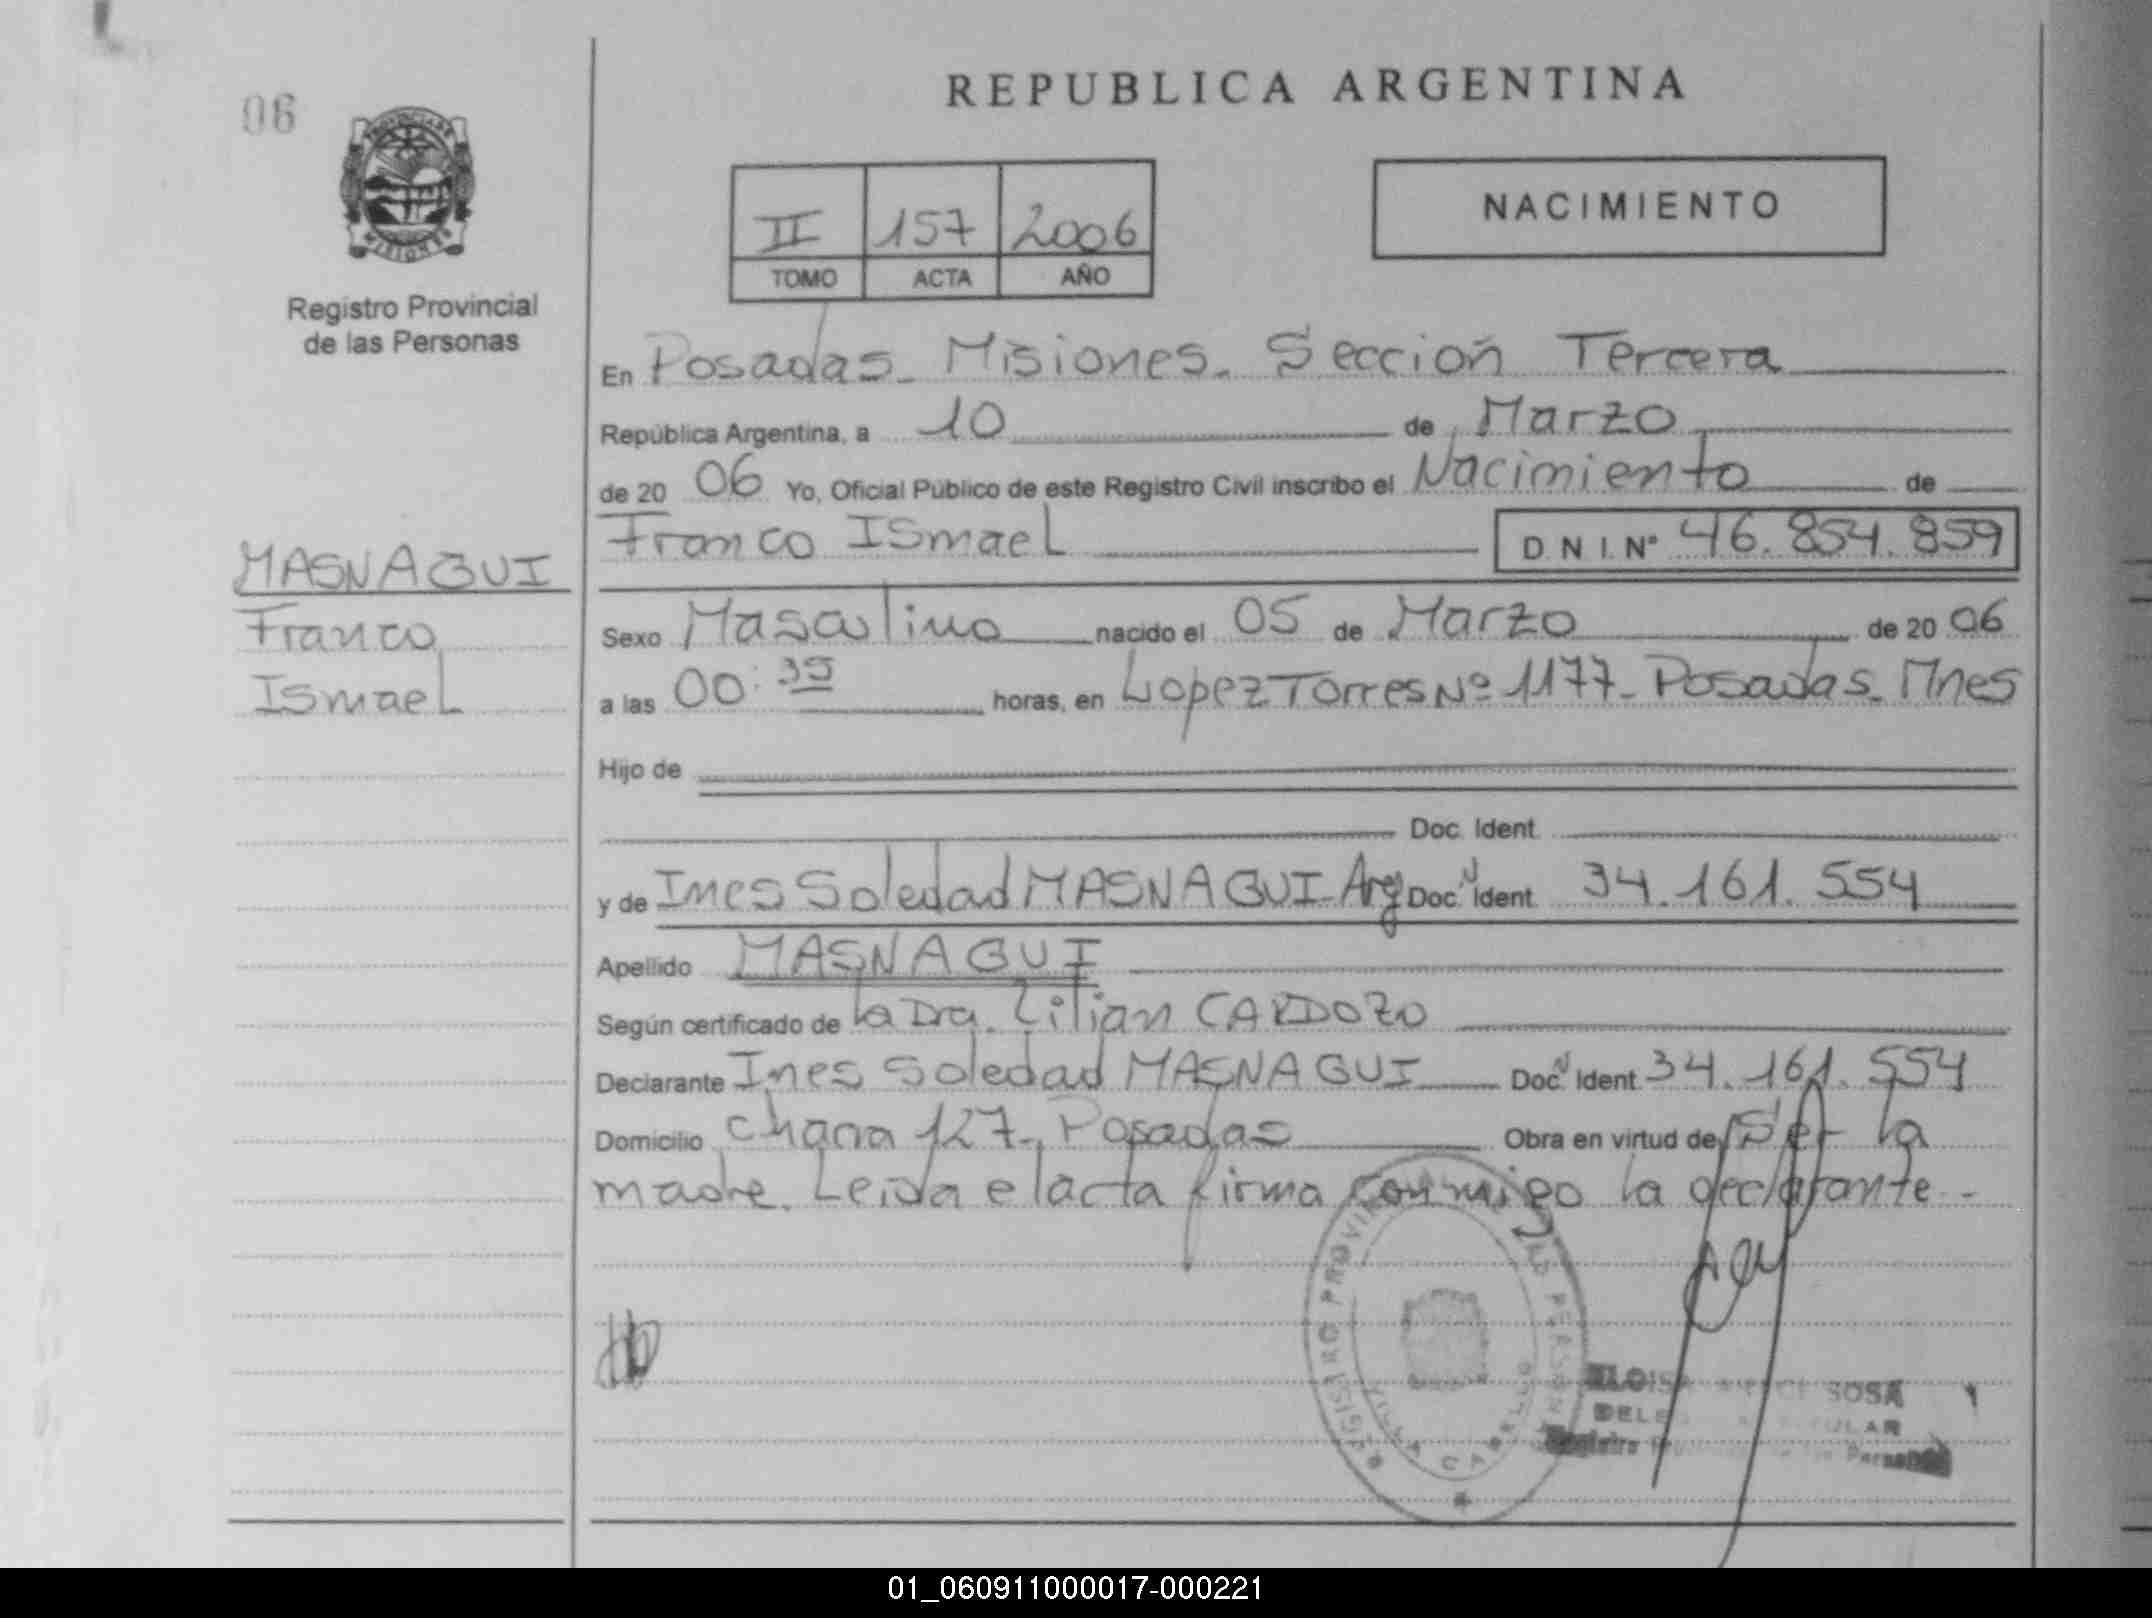 06
PROVINCIA DE
MISIONES
Registro Provincial
de las Personas
REPUBLICA ARGENTINA
II 157 2006
TOMO ACTA AÑO
NACIMIENTO
En Posadas. Misiones. Sección Tercera
República Argentina, a 10 de Marzo
de 20 06 Yo, Oficial Público de este Registro Civil inscribo el Nacimiento de
Franco Ismael D N I. Nº 46.854.859
MASNAGUI
Franco
Ismael
Sexo Masculino nacido el 05 de Marzo de 20 06
a las 00:35 horas, en Lopez Torres Nº 1177 - Posadas. Mnes
Hijo de
Doc. Ident.
y de Ines Soledad MASNAGUI - Arg Doc. Ident. 34.161.554
Apellido MASNAGUI
Según certificado de la Dra. Lilian CARDOZO
Declarante Ines Soledad MASNAGUI Doc. Ident. 34.161.554
Domicilio chana 127 - Posadas Obra en virtud de Ser la
madre. Leida el acta firma conmigo la declarante. -
REGISTRO PROVINCIAL
VILLA CABELLO
SOSA
Registro
01_060911000017-000221